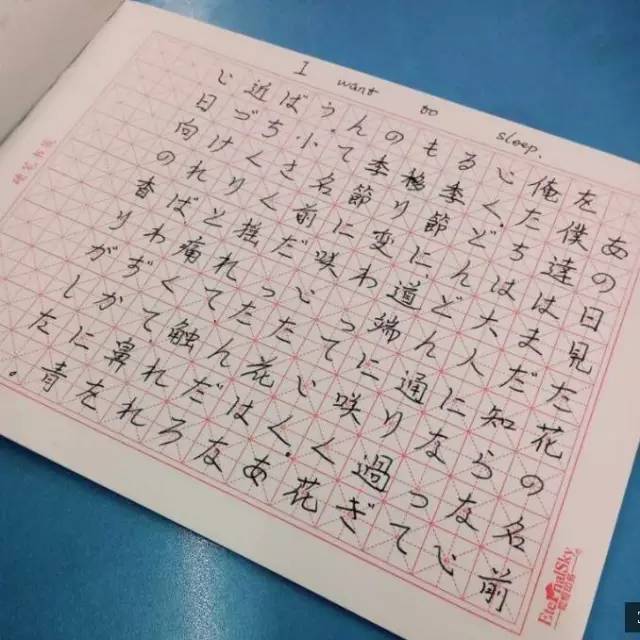 あの日見た花の名前
を僕達はまだ知らない
俺たちは大人になって
いくどんどん通り過ぎ
る季節に道端に咲く花
も移り変わっていく。あ
の季節に咲いた花はな
んて名前だったんだろ
う。小さく揺れて触れれ
ばちくりと痛くて、鼻を
近づければわずかに青
い日向の香りがした。
I want to sleep.
硬笔书法
EternalSky